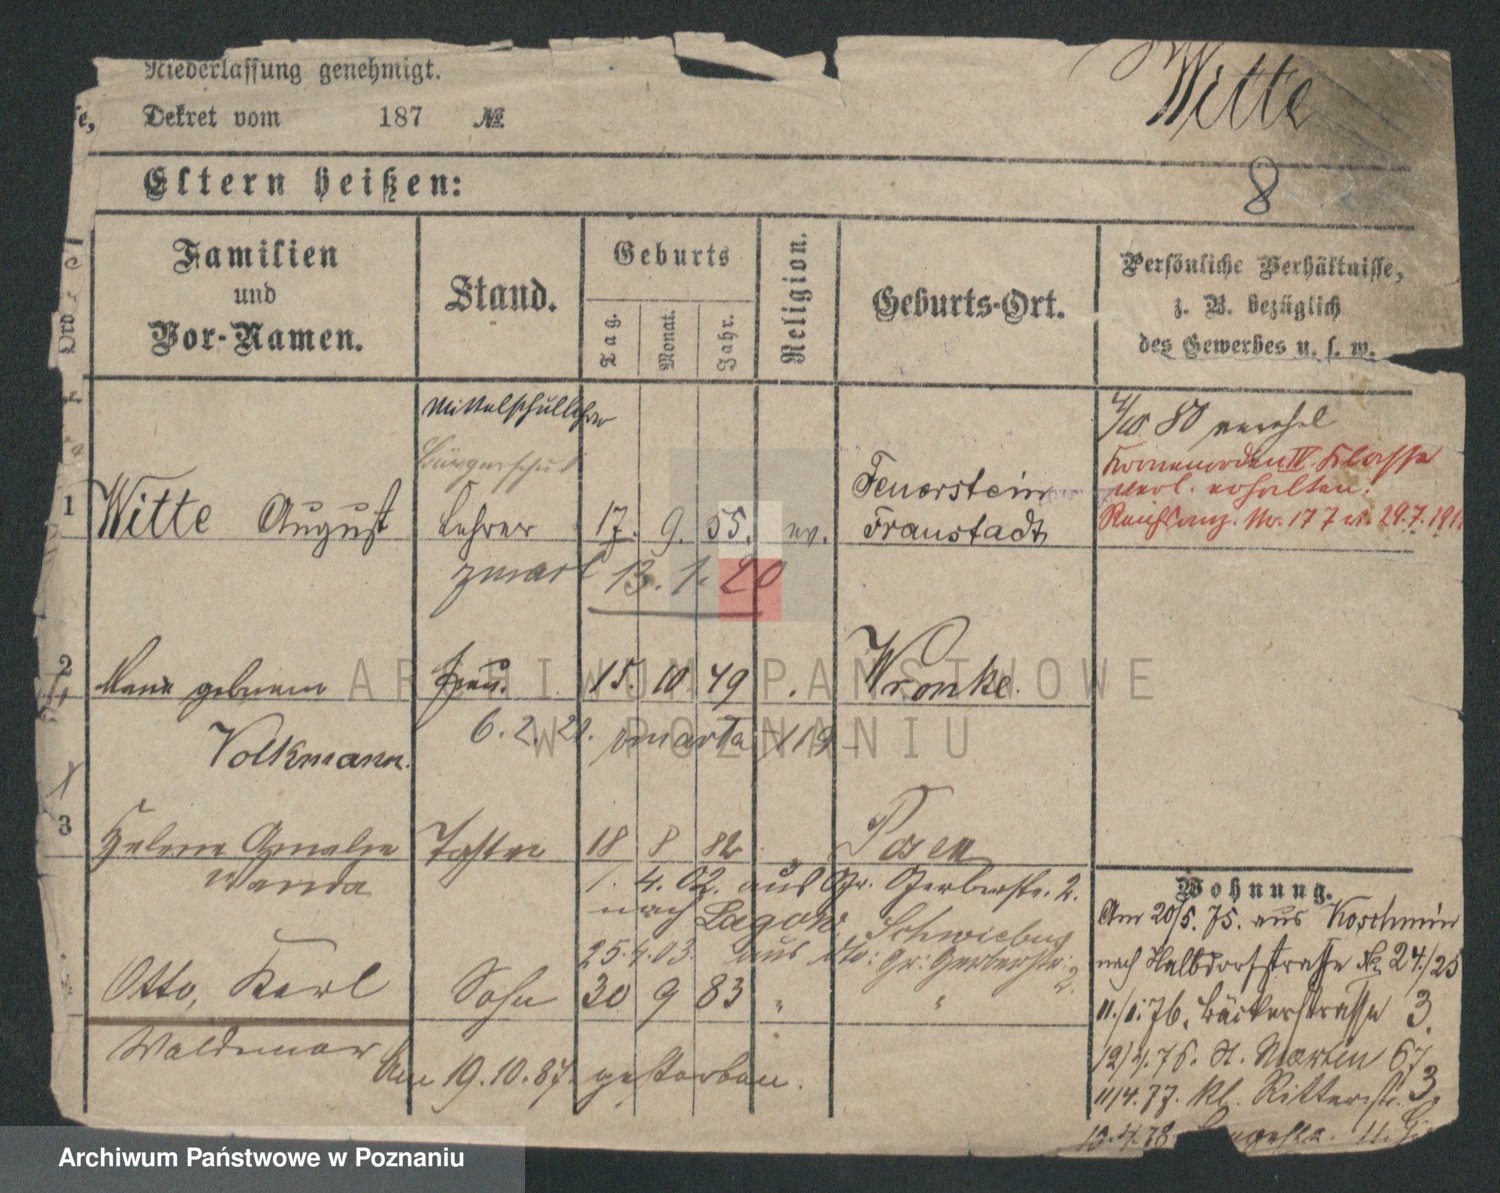 Niederlassung genehmigt.
Dekret vom 187 №
Witte
8
Eltern heißen:
Familien und Vor-Namen.
Stand.
Geburts
Tag.
Monat.
Jahr.
Religion.
Geburts-Ort.
Persönliche Verhältnisse,
z. B. bezüglich
des Gewerbes u. s. w.
Mittelschullehrer
4/10 80 verehel
Kronenorden IV. Klasse
verl. erhalten.
Reichsanz. No. 177 v. 29.7.191
1 Witte August Lehrer 17. 9. 55. ev. Feuerstein
Fraustadt
13. 1. 20
2 geborene Frau. 15. 10. 49 Wronke.
Volkmann.
6. 2. 21.
3 Helene Amalie Tochter 18 8 82 Posen
Wanda
1. 4. 02. aus Gr. Gerberstr. 2.
nach Lagow Schwiebus
25. 4. 03. aus dto: Gr. Gerberstr: 2.
Otto, Karl Sohn 30 9 83 " "
Waldemar
Am 19. 10. 87. gestorben.
Wohnung.
Am 20/5. 75. aus Koschmin
nach Halbdorfstrasse № 24/25
11./1. 76. Bäckerstrasse 3.
12/4. 76. St. Martin 67
11/4. 77. kl. Ritterstr. 3.
ARCHIWUM PAŃSTWOWE
W POZNANIU
Archiwum Państwowe w Poznaniu